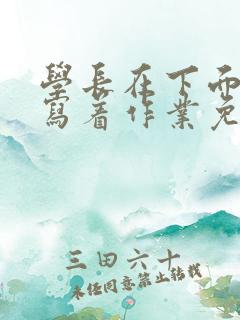 學長在下面
寫着作業免
三田六十
未经同意禁止转载